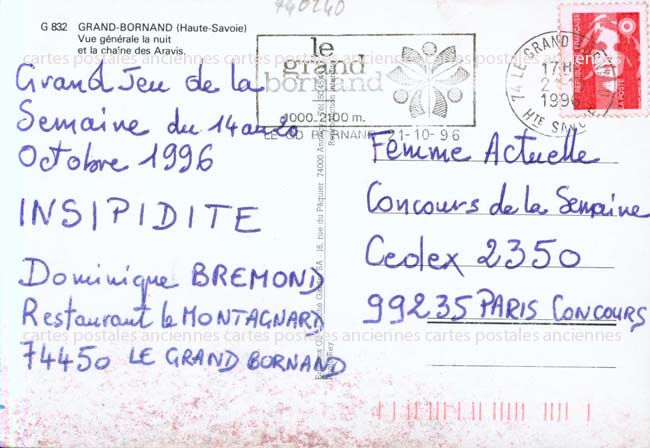 740240
G 832 GRAND-BORNAND (Haute-Savoie)
Vue générale la nuit
et la chaîne des Aravis.
cartes postales anciennes cartes postales anciennes cartes postales anciennes
Grand Jeu de la
Semaine du 14 au 20
Octobre 1996
INSIPIDITE
Dominique BREMOND
Restaurant le MONTAGNARD
74450 LE GRAND BORNAND
le
grand
bornand
1000.2100 m.
LE GD BORNAND 21-10-96
74 LE GRAND
17H
1996
Hte SAVOIE
REPUBLIQUE FRANÇAISE
LA POSTE
Femme Actuelle
Concours de la Semaine
Cedex 2350
99235 PARIS CONCOURS
cartes postales anciennes cartes postales anciennes cartes postales anciennes
SA - 16, rue du Pâquier, 74000